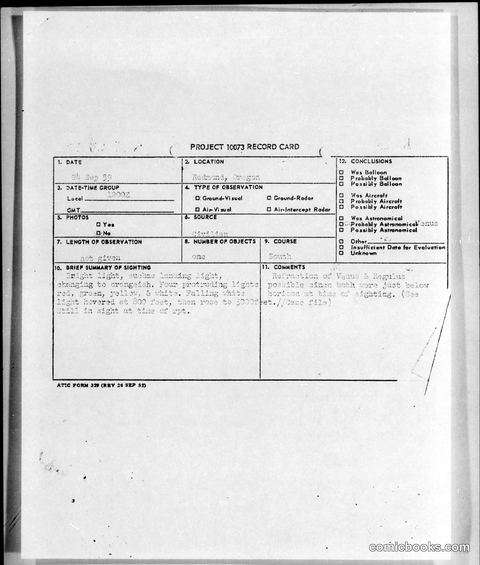 PROJECT 10073 RECORD CARD
1. DATE
24 Sep 59
2. LOCATION
Redmond, Oregon
12. CONCLUSIONS
Was Balloon
Probably Balloon
Possibly Balloon
Was Aircraft
Probably Aircraft
Possibly Aircraft
Was Astronomical
Probably Astronomical Venus
Possibly Astronomical
Other
Insufficient Data for Evaluation
Unknown
3. DATE-TIME GROUP
Local
GMT
4. TYPE OF OBSERVATION
Ground-Visual
Ground-Radar
Air-Visual
Air-Intercept Radar
5. PHOTOS
Yes
No
6. SOURCE
Civilian
7. LENGTH OF OBSERVATION
not given
8. NUMBER OF OBJECTS
one
9. COURSE
South
10. BRIEF SUMMARY OF SIGHTING
Bright light, such as landing light,
changing to orangeish. Four protruding lights
red, green, yellow, & white. Falling white
light hovered at 200 feet, then rose to 3000feet.
Still in sight at time of rpt.
11. COMMENTS
Refraction of Venus & Regulus
possible since both were just below
horizon at time of sighting. (See
//Case file)
ATIC FORM 329 (REV 26 SEP 52)
comicbooks.com